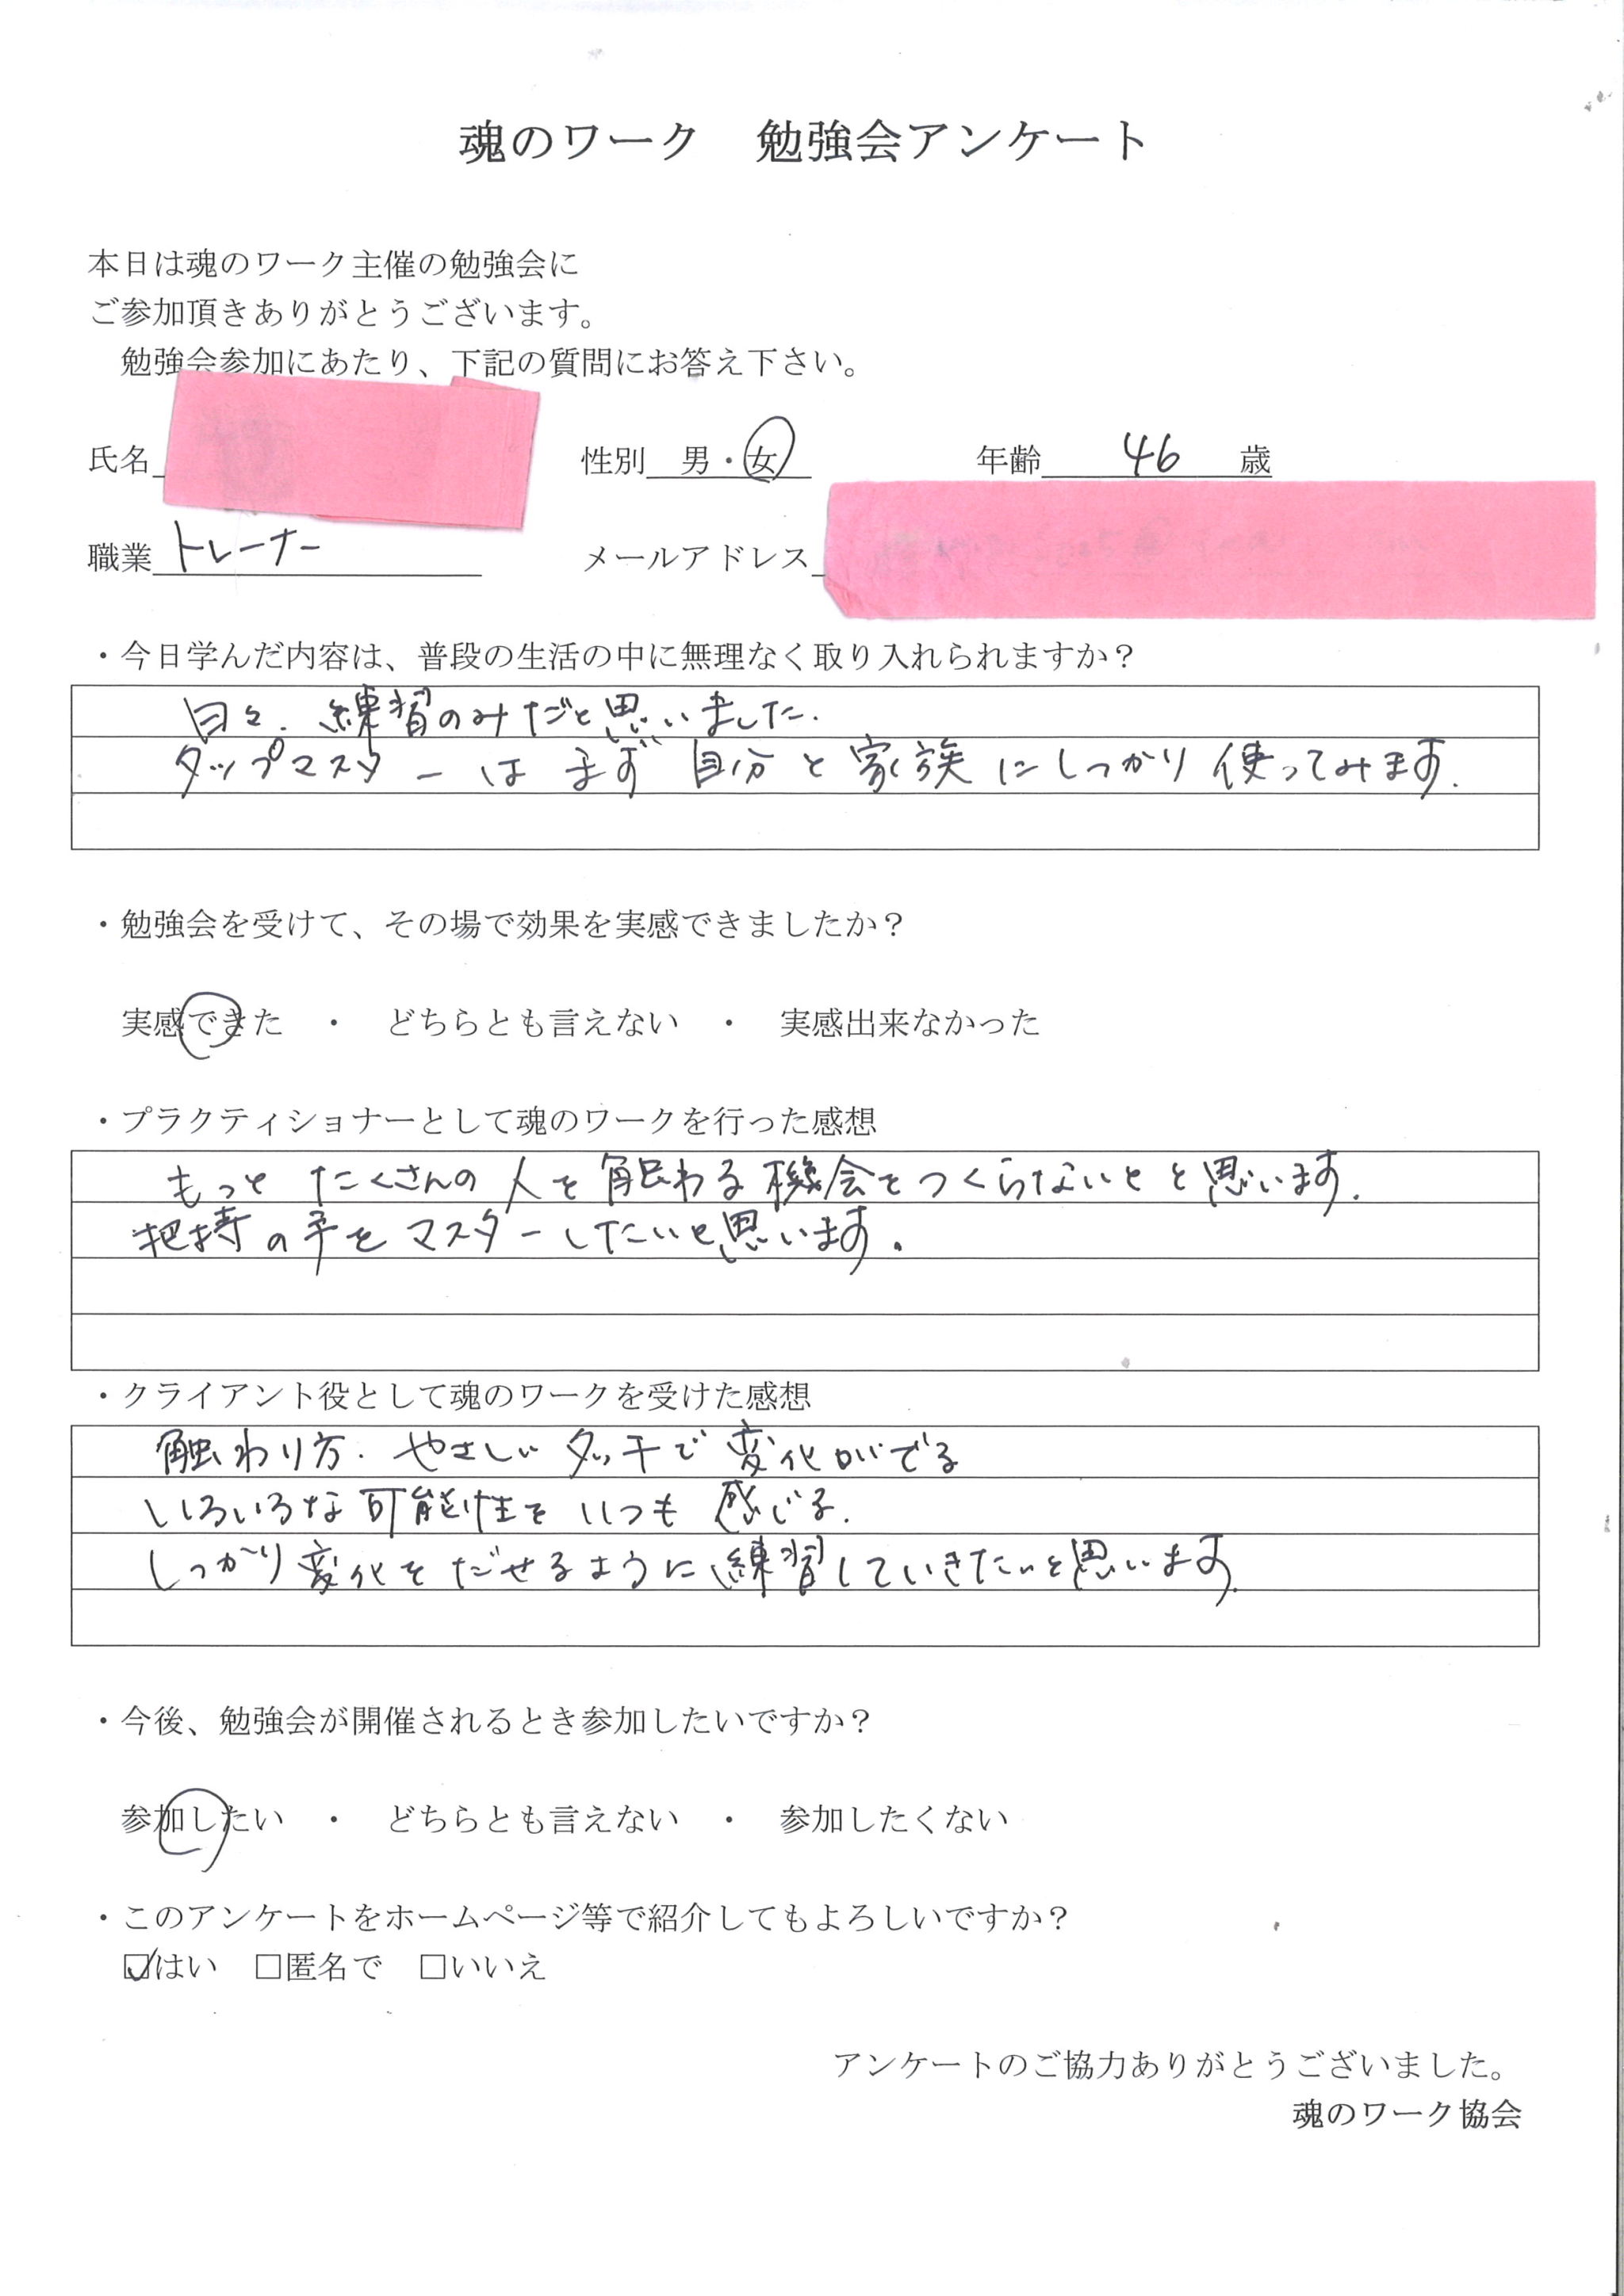 魂のワーク　勉強会アンケート
本日は魂のワーク主催の勉強会に
ご参加頂きありがとうございます。
勉強会参加にあたり、下記の質問にお答え下さい。
氏名　性別　男・女　年齢　46　歳
職業　トレーナー　メールアドレス
・今日学んだ内容は、普段の生活の中に無理なく取り入れられますか？
日々、練習のみだと思いました．
タップマスターは まず 自分と家族にしっかり使ってみます．
・勉強会を受けて、その場で効果を実感できましたか？
実感できた　・　どちらとも言えない　・　実感出来なかった
・プラクティショナーとして魂のワークを行った感想
もっと たくさんの人を触わる機会をつくらないとと思います．
把持の手をマスターしたいと思います。
・クライアント役として魂のワークを受けた感想
触わり方．やさしいタッチで変化がでる
いろいろな可能性をいつも感じる．
しっかり変化をだせるように練習していきたいと思います．
・今後、勉強会が開催されるとき参加したいですか？
参加したい　・　どちらとも言えない　・　参加したくない
・このアンケートをホームページ等で紹介してもよろしいですか？
☑はい　□匿名で　□いいえ
アンケートのご協力ありがとうございました。
魂のワーク協会